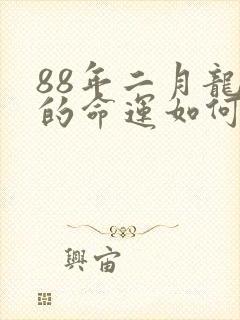 88年二月龍
的命運如何
興宙